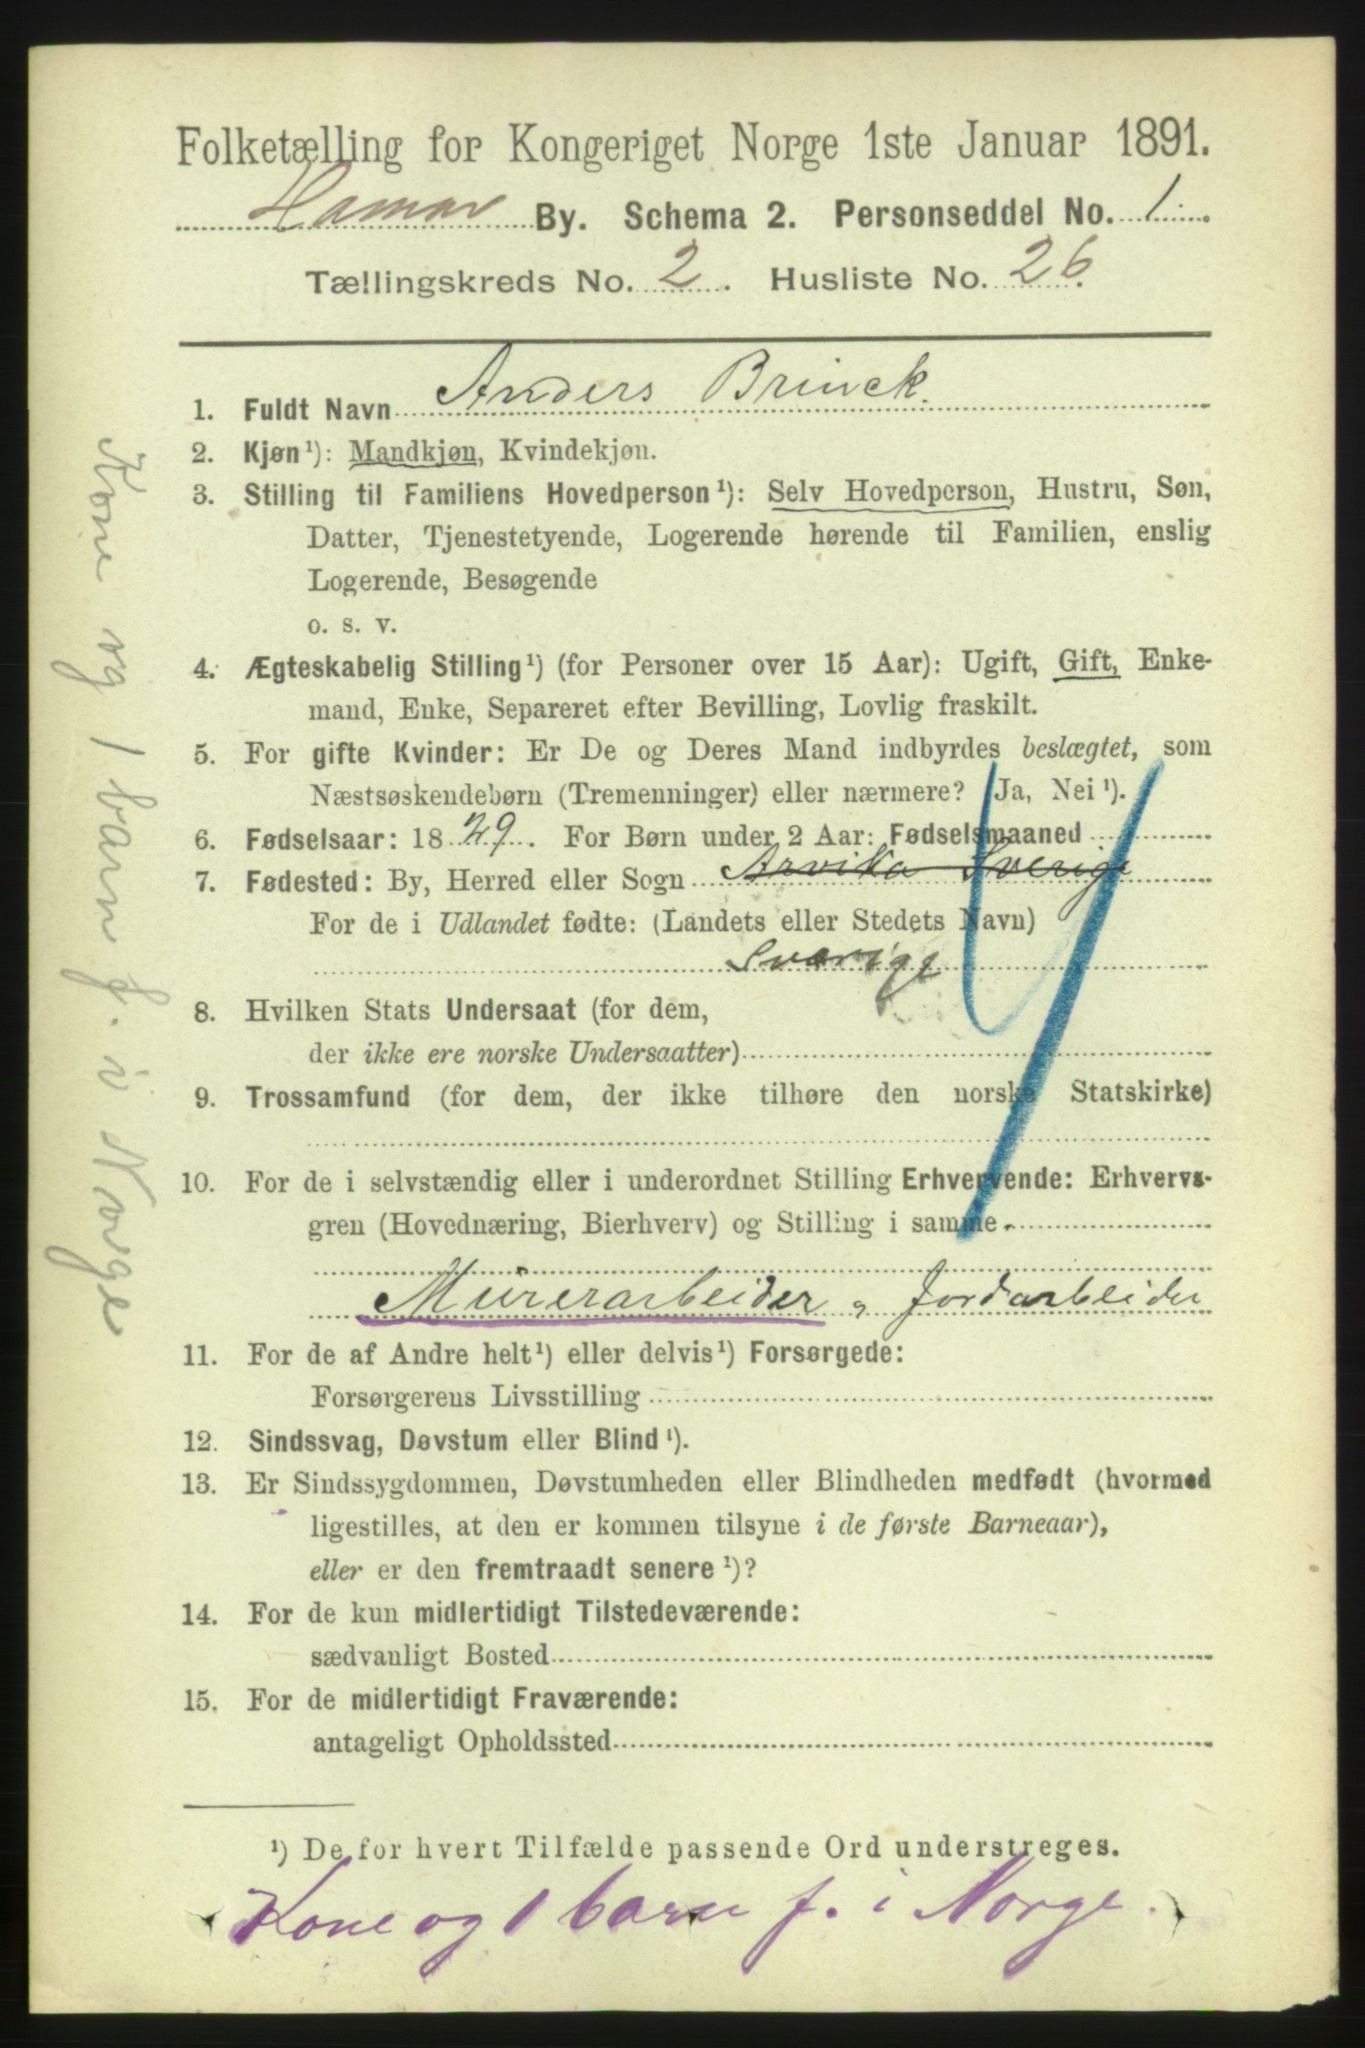 Folketælling for Kongeriget Norge 1ste Januar 1891.
Hamar By. Schema 2. Personseddel No. 1.
Tællingskreds No. 2. Husliste No. 26.
1. Fuldt Navn Anders Brinck.
2. Kjøn¹): Mandkjøn, Kvindekjøn.
3. Stilling til Familiens Hovedperson¹): Selv Hovedperson, Hustru, Søn,
Datter, Tjenestetyende, Logerende hørende til Familien, enslig
Logerende, Besøgende
o. s. v.
4. Ægteskabelig Stilling¹) (for Personer over 15 Aar): Ugift, Gift, Enke-
mand, Enke, Separeret efter Bevilling, Lovlig fraskilt.
5. For gifte Kvinder: Er De og Deres Mand indbyrdes beslægtet, som
Næstsøskendebørn (Tremenninger) eller nærmere? (Ja, Nei¹).
6. Fødselsaar: 1829. For Børn under 2 Aar: Fødselsmaaned
7. Fødested: By, Herred eller Sogn Arvika Sverige
For de i Udlandet fødte: (Landets eller Stedets Navn)
Sverige
8. Hvilken Stats Undersaat (for dem,
der ikke ere norske Undersaatter)
9. Trossamfund (for dem, der ikke tilhøre den norske Statskirke)
10. For de i selvstændig eller i underordnet Stilling Erhvervende: Erhvervs-
gren (Hovednæring, Bierhverv) og Stilling i samme.
Murerarbeider, Jordarbeider
11. For de af Andre helt¹) eller delvis¹) Forsørgede:
Forsørgerens Livsstilling
12. Sindssvag, Døvstum eller Blind¹).
13. Er Sindssygdommen, Døvstumheden eller Blindheden medfødt (hvormed
ligestilles, at den er kommen tilsyne i de første Barneaar),
eller er den fremtraadt senere¹)?
14. For de kun midlertidigt Tilstedeværende:
sædvanligt Bosted
15. For de midlertidigt Fraværende:
antageligt Opholdssted
¹) De for hvert Tilfælde passende Ord understreges.
Kone og 1 barn f. i Norge.
Kone og 1 barn f. i Norge